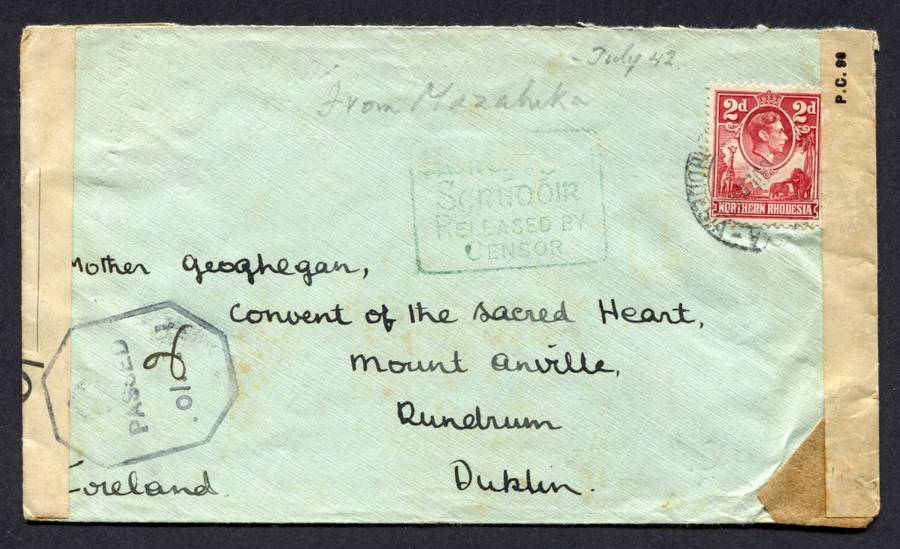 - July 42
From Mazabuka
P.C. 90
2d 2d
NORTHERN RHODESIA
SCRÚDÓIR
RELEASED BY
CENSOR
Mother Geoghegan,
Convent of the Sacred Heart,
Mount Anville,
Dundrum
Dublin.
Ireland.
PASSED
010